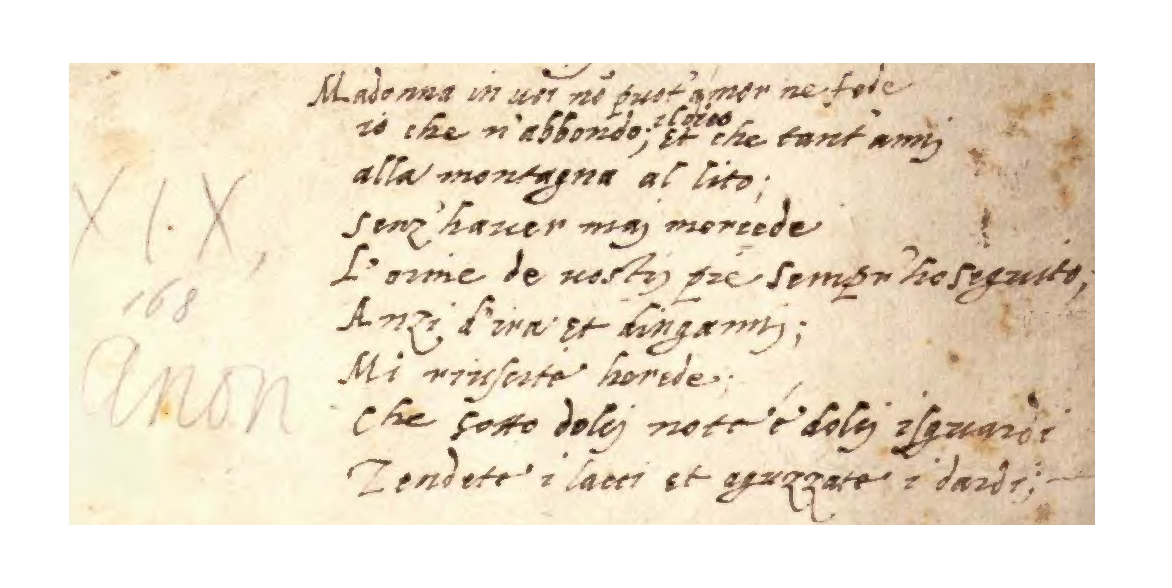 Madonna in uoi nõ puot'amor ne fede
io che n'abbondo; et che tant'annj
il dico
alla montagna al lito;
senz'hauer maj mercede
XIX,
L'orme de uostrj piè sempr'ho seguito;
168
Anzi d'ira et d'ingannj;
anon
Mi riuscite herede;
che sotto dolcj note é dolcj isguardi
Tendete i lacci et aguzzate i dardi;